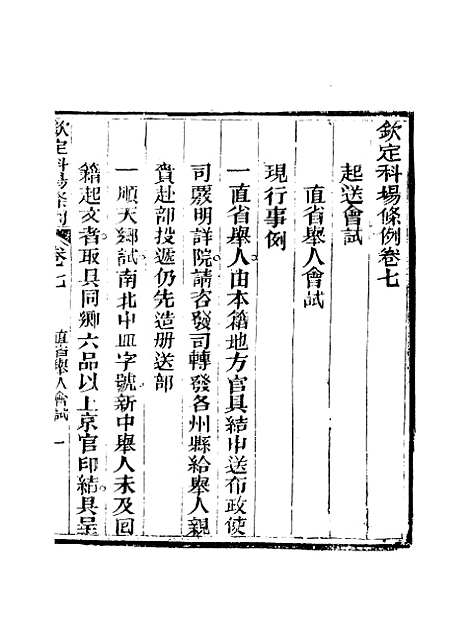 欽定科場條例卷七
起送會試
直省舉人會試
現行事例
一直省舉人由本籍地方官具結申送布政使
司覈明詳院請咨發司轉發各州縣給舉人親
賫赴部投遞仍先造册送部
一順天鄉試南北中皿字號新中舉人未及回
籍起文者取具同鄉六品以上京官印結具呈
欽定科場條例 卷七 直省舉人會試 一